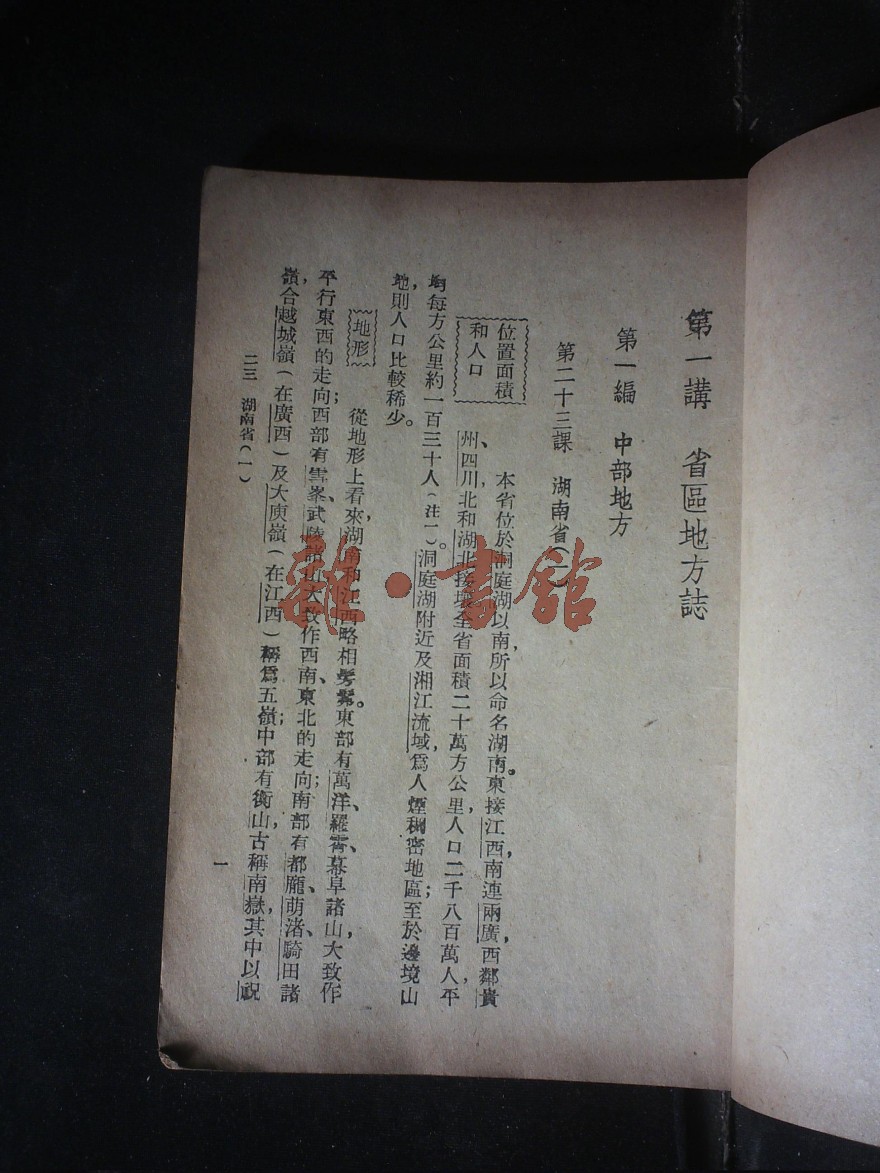 第一講 省區地方誌
第一編 中部地方
第二十三課 湖南省(一)
位置面積
和人口
本省位於洞庭湖以南,所以命名湖南。東接江西,南連兩廣,西鄰貴
州、四川,北和湖北接壤。全省面積二十萬方公里,人口二千八百萬人,平
均每方公里約一百三十人(注一)。洞庭湖附近及湘江流域,爲人煙稠密地區;至於邊境山
地,則人口比較稀少。
地形
從地形上看來,湖南和江西略相髣髴。東部有萬洋、羅霄、幕阜諸山,大致作
平行東西的走向;西部有雪峯、武陵諸山,大致作西南、東北的走向;南部有都龐、萌渚、騎田諸
嶺,合越城嶺(在廣西)及大庾嶺(在江西)稱爲五嶺;中部有衡山,古稱南嶽,其中以祝
二三 湖南省(一)
一
龍·書舘